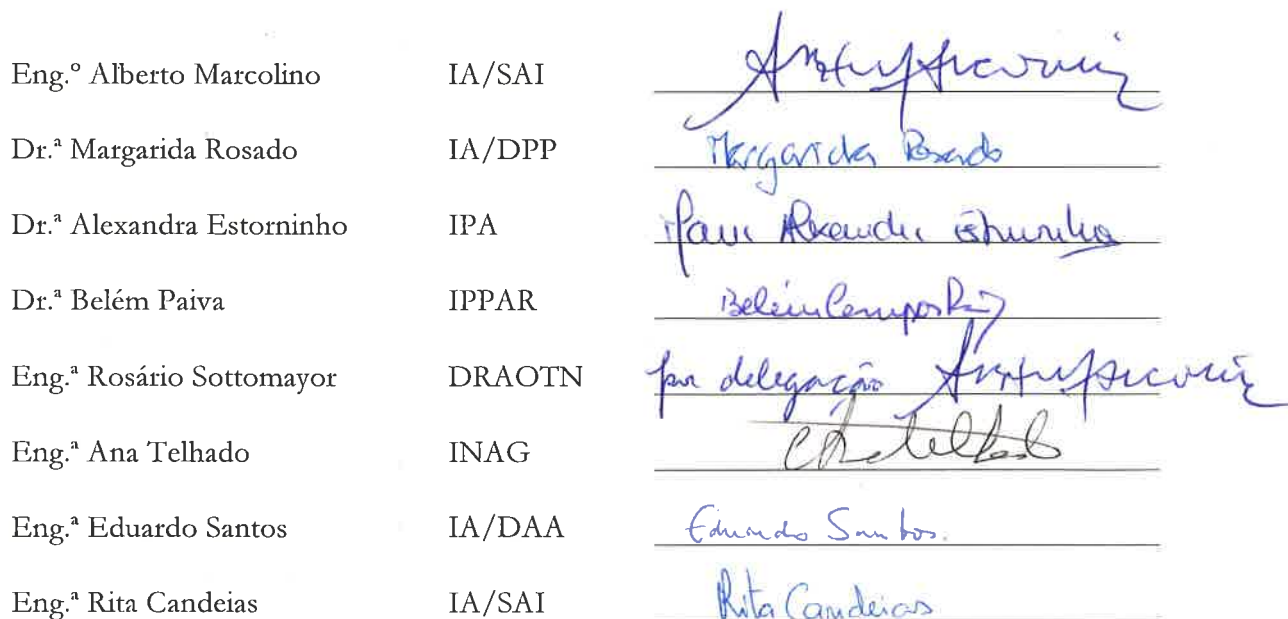 Eng.º Alberto Marcolino IA/SAI
Dr.ª Margarida Rosado IA/DPP Margarida Rosado
Dr.ª Alexandra Estorninho IPA Alexandra Estorninho
Dr.ª Belém Paiva IPPAR Belém Campos Paiva
Eng.ª Rosário Sottomayor DRAOTN por delegação
Eng.ª Ana Telhado INAG
Eng.ª Eduardo Santos IA/DAA Eduardo Santos.
Eng.ª Rita Candeias IA/SAI Rita Candeias